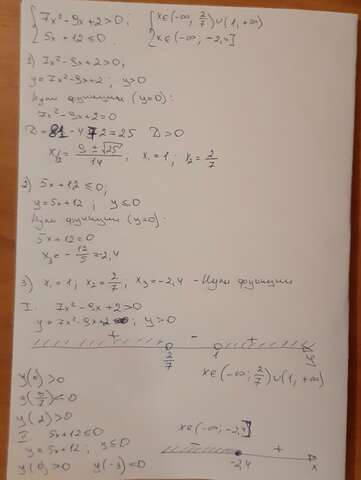 {7x²-9x+2>0; {x∈(-∞, 2/7)∪(1,+∞)
{5x+12≤0. {x∈(-∞,-2,4]
1) 7x²-9x+2>0,
y=7x²-9x+2; y>0
Нули функции (y=0):
7x²-9x+2=0
D=81-4·7·2=25 D>0
x₁/₂=(9±√25)/14; x₁=1; x₂=2/7
2) 5x+12≤0;
y=5x+12; y≤0
Нули функции (y=0):
5x+12=0
x₃=-12/5=-2,4
3) x₁=1; x₂=2/7, x₃=-2,4 - Нули функции
I. 7x²-9x+2>0
y=7x²-9x+2; y>0
+ - +
2/7 1 x
y(0)>0 x∈(-∞; 2/7)∪(1,+∞
<0
y(2)>0
II 5x+12≤0 x∈(-∞,-2,4]
y=5x+12; y≤0 - +
-2,4 x
y(0)>0 y(-3)<0